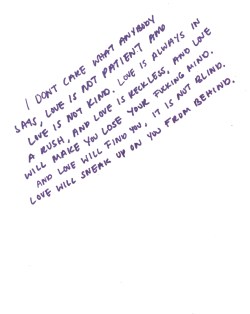 I DON'T CARE WHAT ANYBODY
SAYS, LOVE IS NOT PATIENT AND
LOVE IS NOT KIND. LOVE IS ALWAYS IN
A RUSH, AND LOVE IS RECKLESS. AND LOVE
WILL MAKE YOU LOSE YOUR FUCKING MIND.
AND LOVE WILL FIND YOU, IT IS NOT BLIND.
LOVE WILL SNEAK UP ON YOU FROM BEHIND.